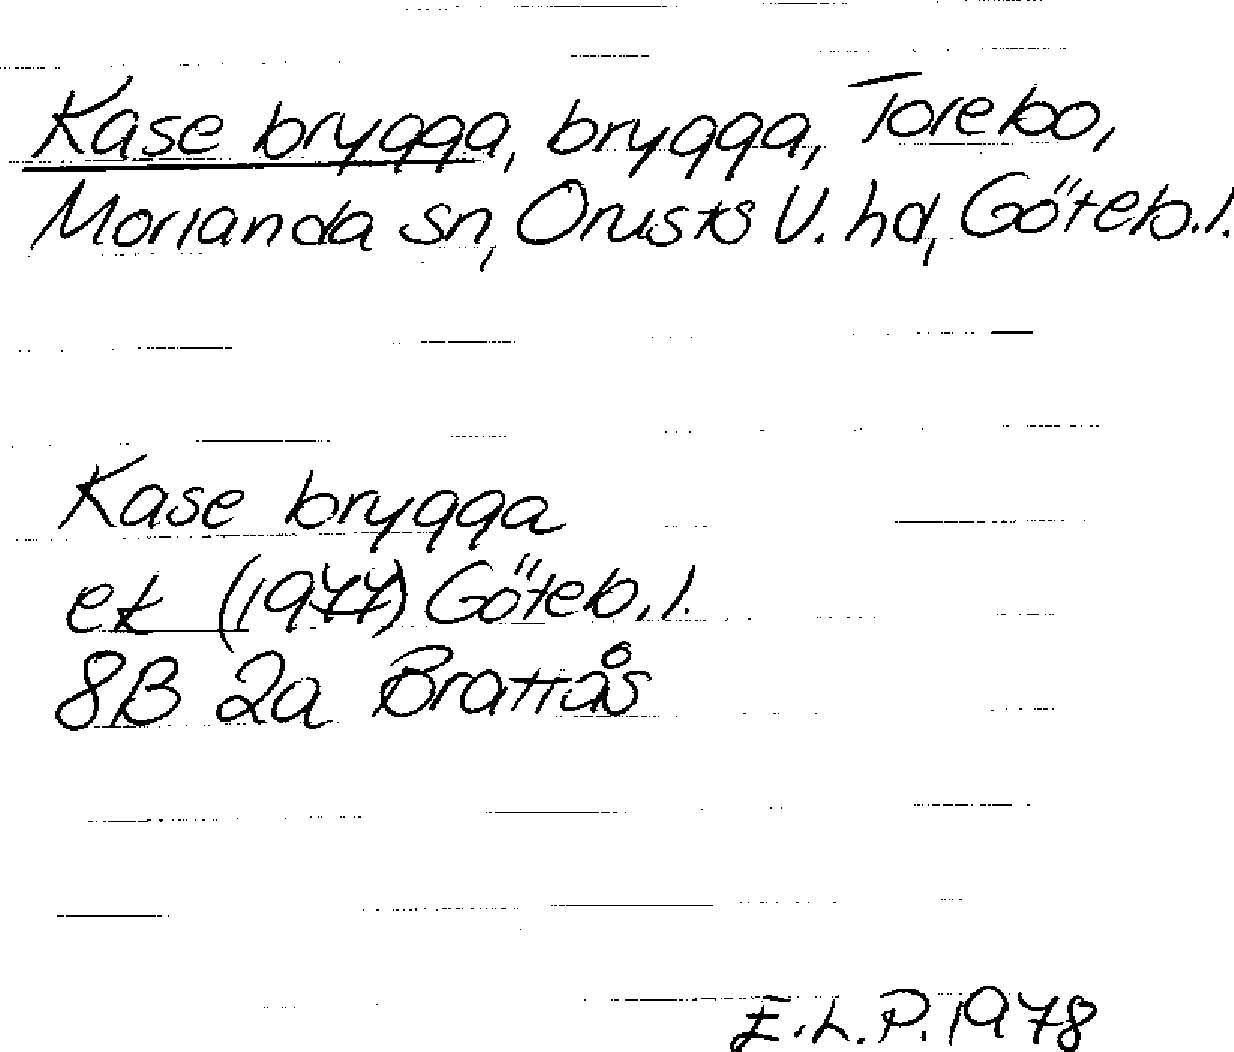 Kase brygga, brygga, Torebo,
Morlanda sn, Orusts V. hd, Göteb.l.
Kase brygga
ek (1977) Göteb.l.
8B 2a Brattås
E.L.P. 1978